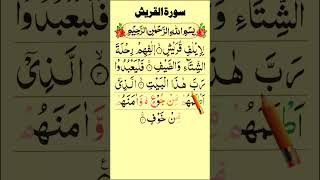 سورة القريش
بِسْمِ اللهِ الرَّحْمٰنِ الرَّحِيْمِ
لِاِيْلٰفِ قُرَيْشٍ ۙ اٖلٰفِهِمْ رِحْلَةَ
الشِّتَآءِ وَالصَّيْفِ ۚ فَلْيَعْبُدُوْا
رَبَّ هٰذَا الْبَيْتِ ۙ الَّذِيْٓ
اَطْعَمَهُمْ مِّنْ جُوْعٍ ۙ وَّاٰمَنَهُمْ
مِّنْ خَوْفٍ
الشِّتَآءِ وَالصَّيْفِ ۚ فَلْيَعْبُدُوْا
رَبَّ هٰذَا الْبَيْتِ ۙ الَّذِيْٓ